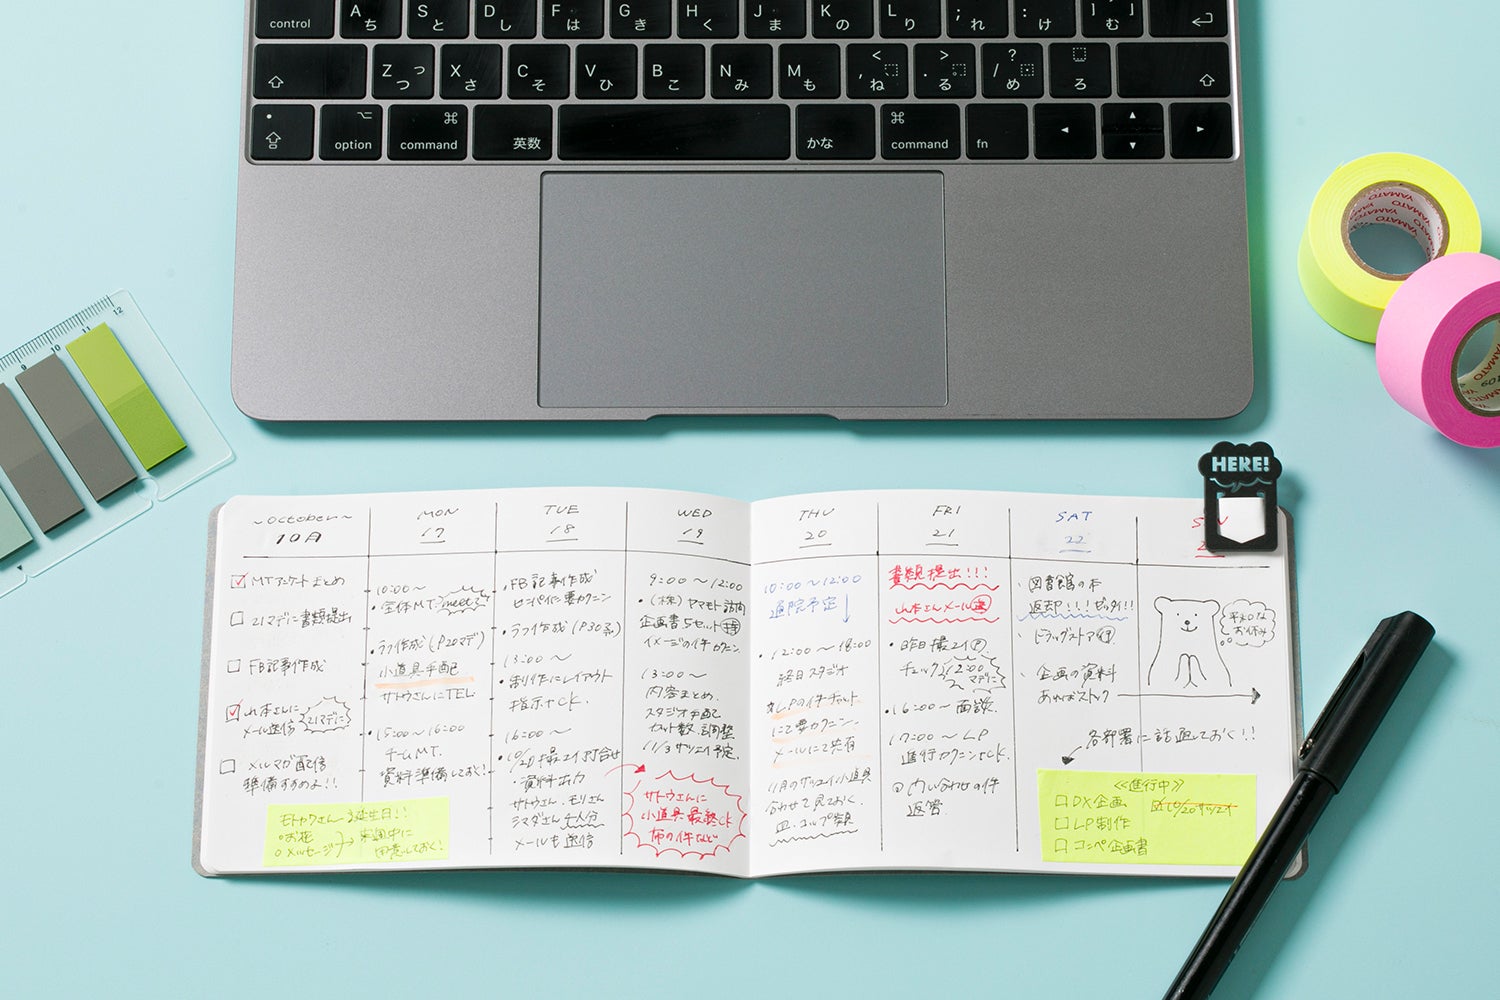 control A ち S と D し F は G き H く J ま K の L り ; れ : け ] む
Z つ っ X さ C そ V ひ B こ N み M も , < ね . > る / ? め ろ
option command 英数 かな command fn
9 10 11 12
YAMATO
YAMATO
HERE!
~October~
10月
MTアンケートまとめ
21マデに書類提出
FB記事作成
山本さんに
メール送信
21マデに
メルマガ配信
準備すすめよ!!
お花
メッセージ
MON
17
10:00~
・全体MT.
meet
ラフ作成(P20マデ)
小道具手配
サトウさんにTEL
15:00~16:00
チームMT.
資料準備しておく!
TUE
18
・FB記事作成
・ラフ作成(P30系)
13:00~
・制作にレイアウト
指示+ck.
16:00~
・資料出力
サトウさん、モリさん
メールも送信
WED
19
9:00~12:00
・(株)ヤマモト訪問
企画書5セット 持
イメージの件カクニン
13:00~
内容まとめ.
スタジオ手配
カット数調整
サトウさんに
小道具最終ck
THU
20
10:00~12:00
通院予定
・12:00~18:00
終日スタジオ
LPの件チャット
にて要カクニン.
メールにて共有
11月のサツエイ小道具
合わせて見ておく.
皿・コップ
FRI
21
書類提出!!!
山本さんメール
・昨日撮エイ
チェック
12:00
マデに
・16:00~面談
17:00~LP
進行カクニン+ck.
問い合わせの件
返答
SAT
22
・図書館の本
返却!!!ゼッタイ!!
・ドラッグストア
・企画の資料
あればストック
平和な
お休み
各部署に話通しておく!!
≪進行中≫
DX企画
LP制作
コンペ企画書